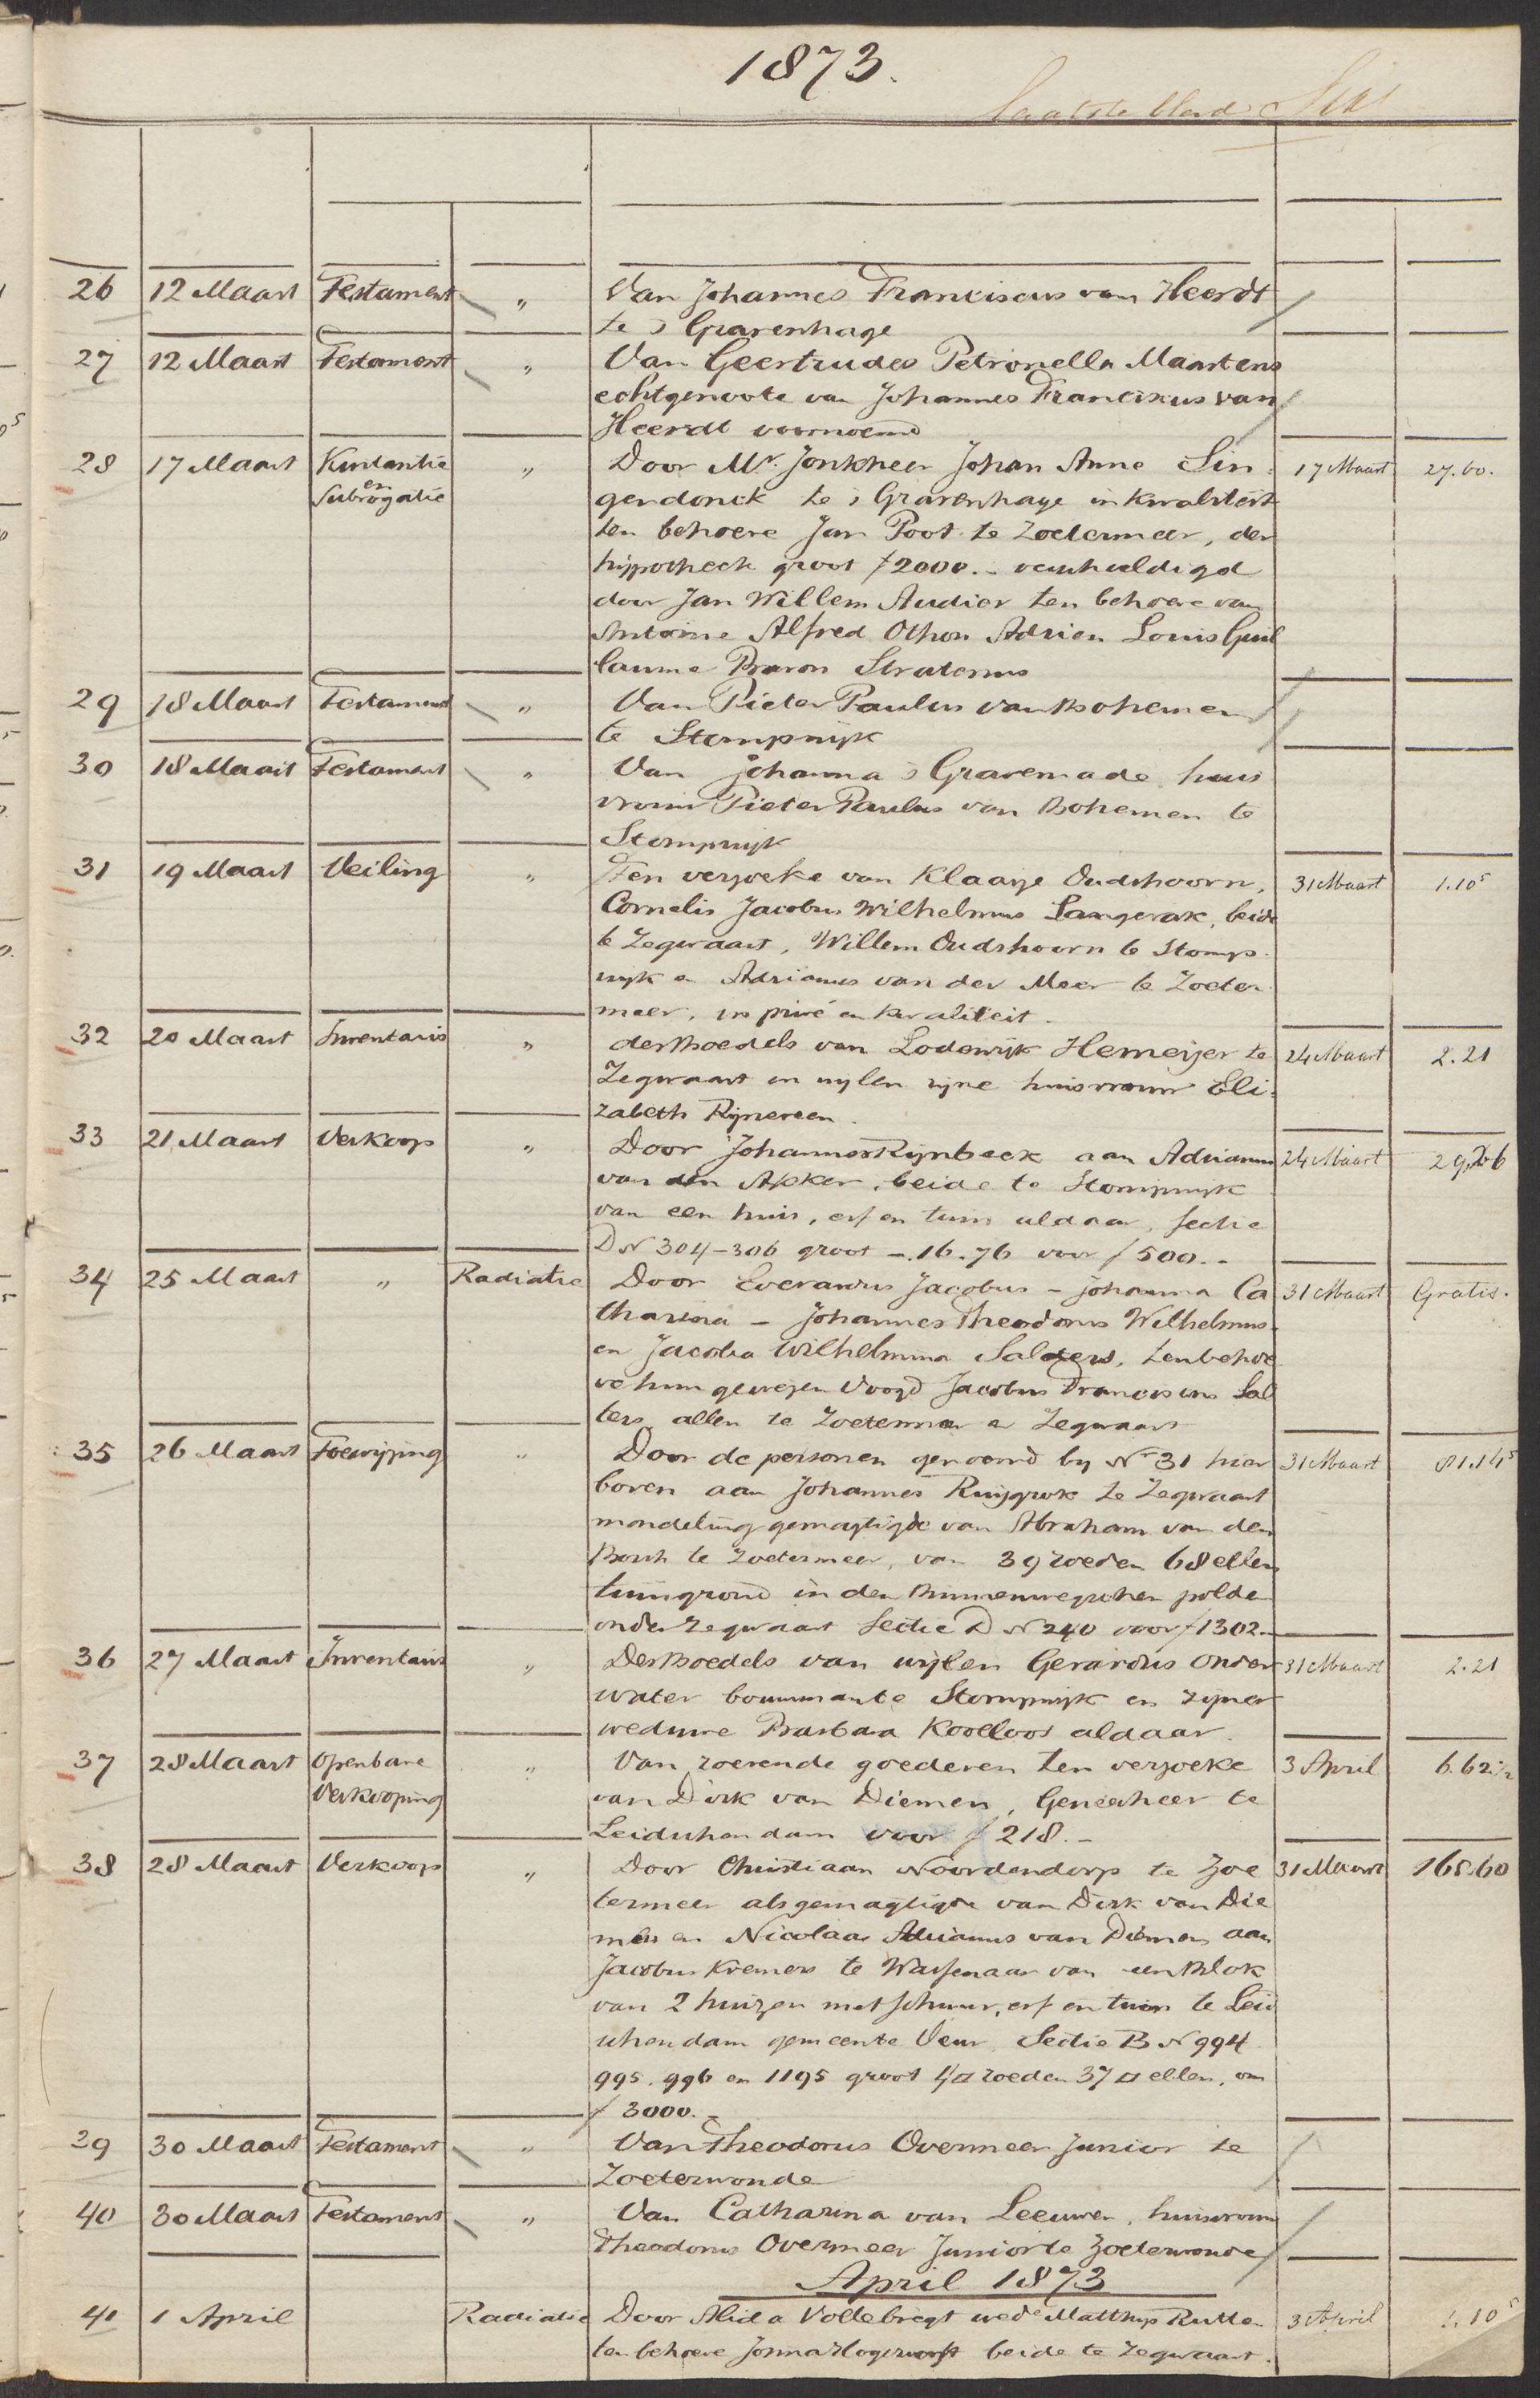 1873.
Laatste blad
26 12 Maart Testament „ Van Johannes Franciscus van Heerdt
te 's Gravenhage
27 12 Maart Testament „ Van Geertrudes Petronella Maartens
echtgenoote van Johannes Franciscus van
Heerdt voornoemd
28 17 Maart Kwitantie „ Door Mr. Jonkheer Johan Anne Sin- 17 Maart 27.60.
en
Subrogatie gendonck te 's Gravenhage in kwaliteit
ten behoeve Jan Poot te Zoetermeer, der
hijpotheek groot ƒ2000.- verschuldigd
door Jan Willem Audier ten behoeve van
Antoine Alfred Othon Adrien Louis Guil
laume Baron Stratenus
29 18 Maart Testament „ Van Pieter Paulus van Bohemen
te Stompwijk
30 18 Maart Testament „ Van Johanna 's Gravemade huis
vrouw Pieter Paulus van Bohemen te
Stompwijk
31 19 Maart Veiling „ Ten verzoeke van Klaasje Oudshoorn, 31 Maart 1.10⁵
Cornelis Jacobus Wilhelmus Langerak, beide
te Zegwaart, Willem Oudshoorn te Stomp-
wijk en Adrianus van der Meer te Zoeter-
meer, in privé en kwaliteit.
32 20 Maart Inventaris „ des Boedels van Lodewijk Hemeijer te 24 Maart 2.21
Zegwaart en wylen zijne huisvrouw Eli-
zabeth Rijneveen.
33 21 Maart Verkoop „ Door Johannes Rijnbeek aan Adrianus 24 Maart
van den Akker, beide te Stompwijk
van een huis, erf en tuin aldaar, sectie
D N 304-306 groot -.16.76 voor ƒ500.-
34 25 Maart „ Radiatie Door Everardus Jacobus - Johanna Ca 31 Maart Gratis.
tharina - Johannes Theodorus Wilhelmus-
en Jacoba Wilhelmina Salters, ten behoe
ve hun gewezen Voogd Jacobus Franciscus Sal
ters allen te Zoetermeer en Zegwaart
35 26 Maart Toewijzing „ Door de personen genoemd by N 31 hier 31 Maart 81.14⁵
boven aan Johannes Ruijgrok te Zegwaart
mondeling gemagtigde van Abraham van den
Bosch te Zoetermeer, van 39 roeden 68 ellen
tuingrond in den Binnenwegschen polder
onder Zegwaart Sectie D N 240 voor ƒ1302.-
36 27 Maart Inventaris „ Des Boedels van wijlen Gerardus Onder 31 Maart 2.21
water bouwman te Stompwijk en zijner
weduwe Barbara Koeloos aldaar.
37 28 Maart Openbare „ Van roerende goederen ten verzoeke 3 April 6.62½
Verkooping van Dirk van Diemen, Geneesheer te
Leidschendam voor ƒ218.-
38 28 Maart Verkoop „ Door Christiaan Noordendorp te Zoe 31 Maart 165.60
termeer als gemagtigde van Dirk van Die
men en Nicolaas Adrianus van Diemen aan
Jacobus Kremers te Wassenaar van een Blok
van 2 huizen met schuur, erf en tuin te Leid
schendam gemeente Veur, Sectie B N 994
995. 996 en 1195 groot 4□ roeden 37□ ellen, om
ƒ3000.-
39 30 Maart Testament „ Van Theodorus Overmeer Junior te
Zoeterwoude
40 30 Maart Testament „ Van Catharina van Leeuwen, huisvrouw
Theodorus Overmeer Junior te Zoeterwoude
April 1873
41 1 April Radiatie Door Alida Vollebregt wede Matthijs Rutte- 3 April 1.10⁵
ten behoeve Hogerworft beide te Zegwaart.